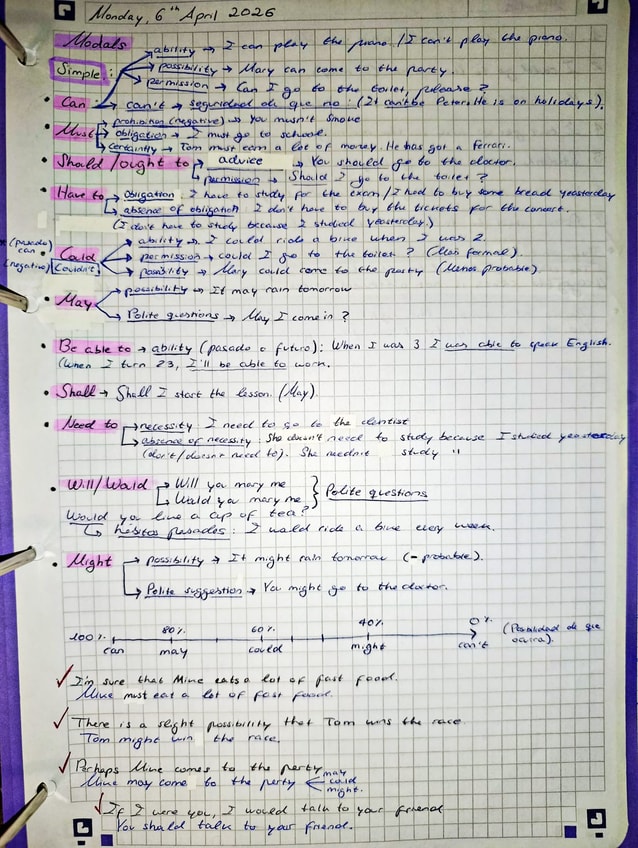 Monday, 6th April 2026
Modals
Simple:
ability → I can play the piano. / I can't play the piano.
possibility → Mary can come to the party.
permission → Can I go to the toilet, please?
• Can: can't → seguridad de que no: (It can't be Peter. He is on holidays).
• Must prohibition (negative) → You musn't smoke
obligation → I must go to school.
certainty → Tom must earn a lot of money. He has got a Ferrari.
• Should / ought to → advice → You should go to the doctor.
permission → Should I go to the toilet?
• Have to → obligation: I have to study for the exam / I had to buy some bread yeasterday
absence of obligation: I don't have to buy the tickets for the concert.
(I don't have to study because I studied yeasterday.)
* (pasado) can
(negative)
• Could
Couldn't
ability → I could ride a bike when I was 2.
permission → could I go to the toilet? (Más formal).
possibility → Mary could come to the party (Menos probable)
• May
possibility → It may rain tomorrow
Polite questions → May I come in?
• Be able to → ability (pasado o futuro): When I was 3 I was able to speak English.
(When I turn 23, I'll be able to work.
• Shall → Shall I start the lesson. (May).
• Need to → necessity: I need to go to the dentist
absence of necessity: She doesn't need to study because I studied yeasterday
(don't/doesn't need to). She needn't study "
• Will/Would → Will you mary me
Would you mary me } Polite questions
Would you like a cup of tea?
hábitos pasados: I would ride a bike every week.
• Might → possibility → It might rain tomorrow (- probable).
Polite suggestion → You might go to the doctor.
100% 80% 60% 40% 0% (Posibilidad de que ocurra).
can may could might can't
I'm sure that Mike eats a lot of fast food.
Mike must eat a lot of fast food.
There is a slight possibility that Tom wins the race.
Tom might win the race.
Perhaps Mike comes to the party
Mike may come to the party may could might.
If I were you, I would talk to your friend
You should talk to your friend.